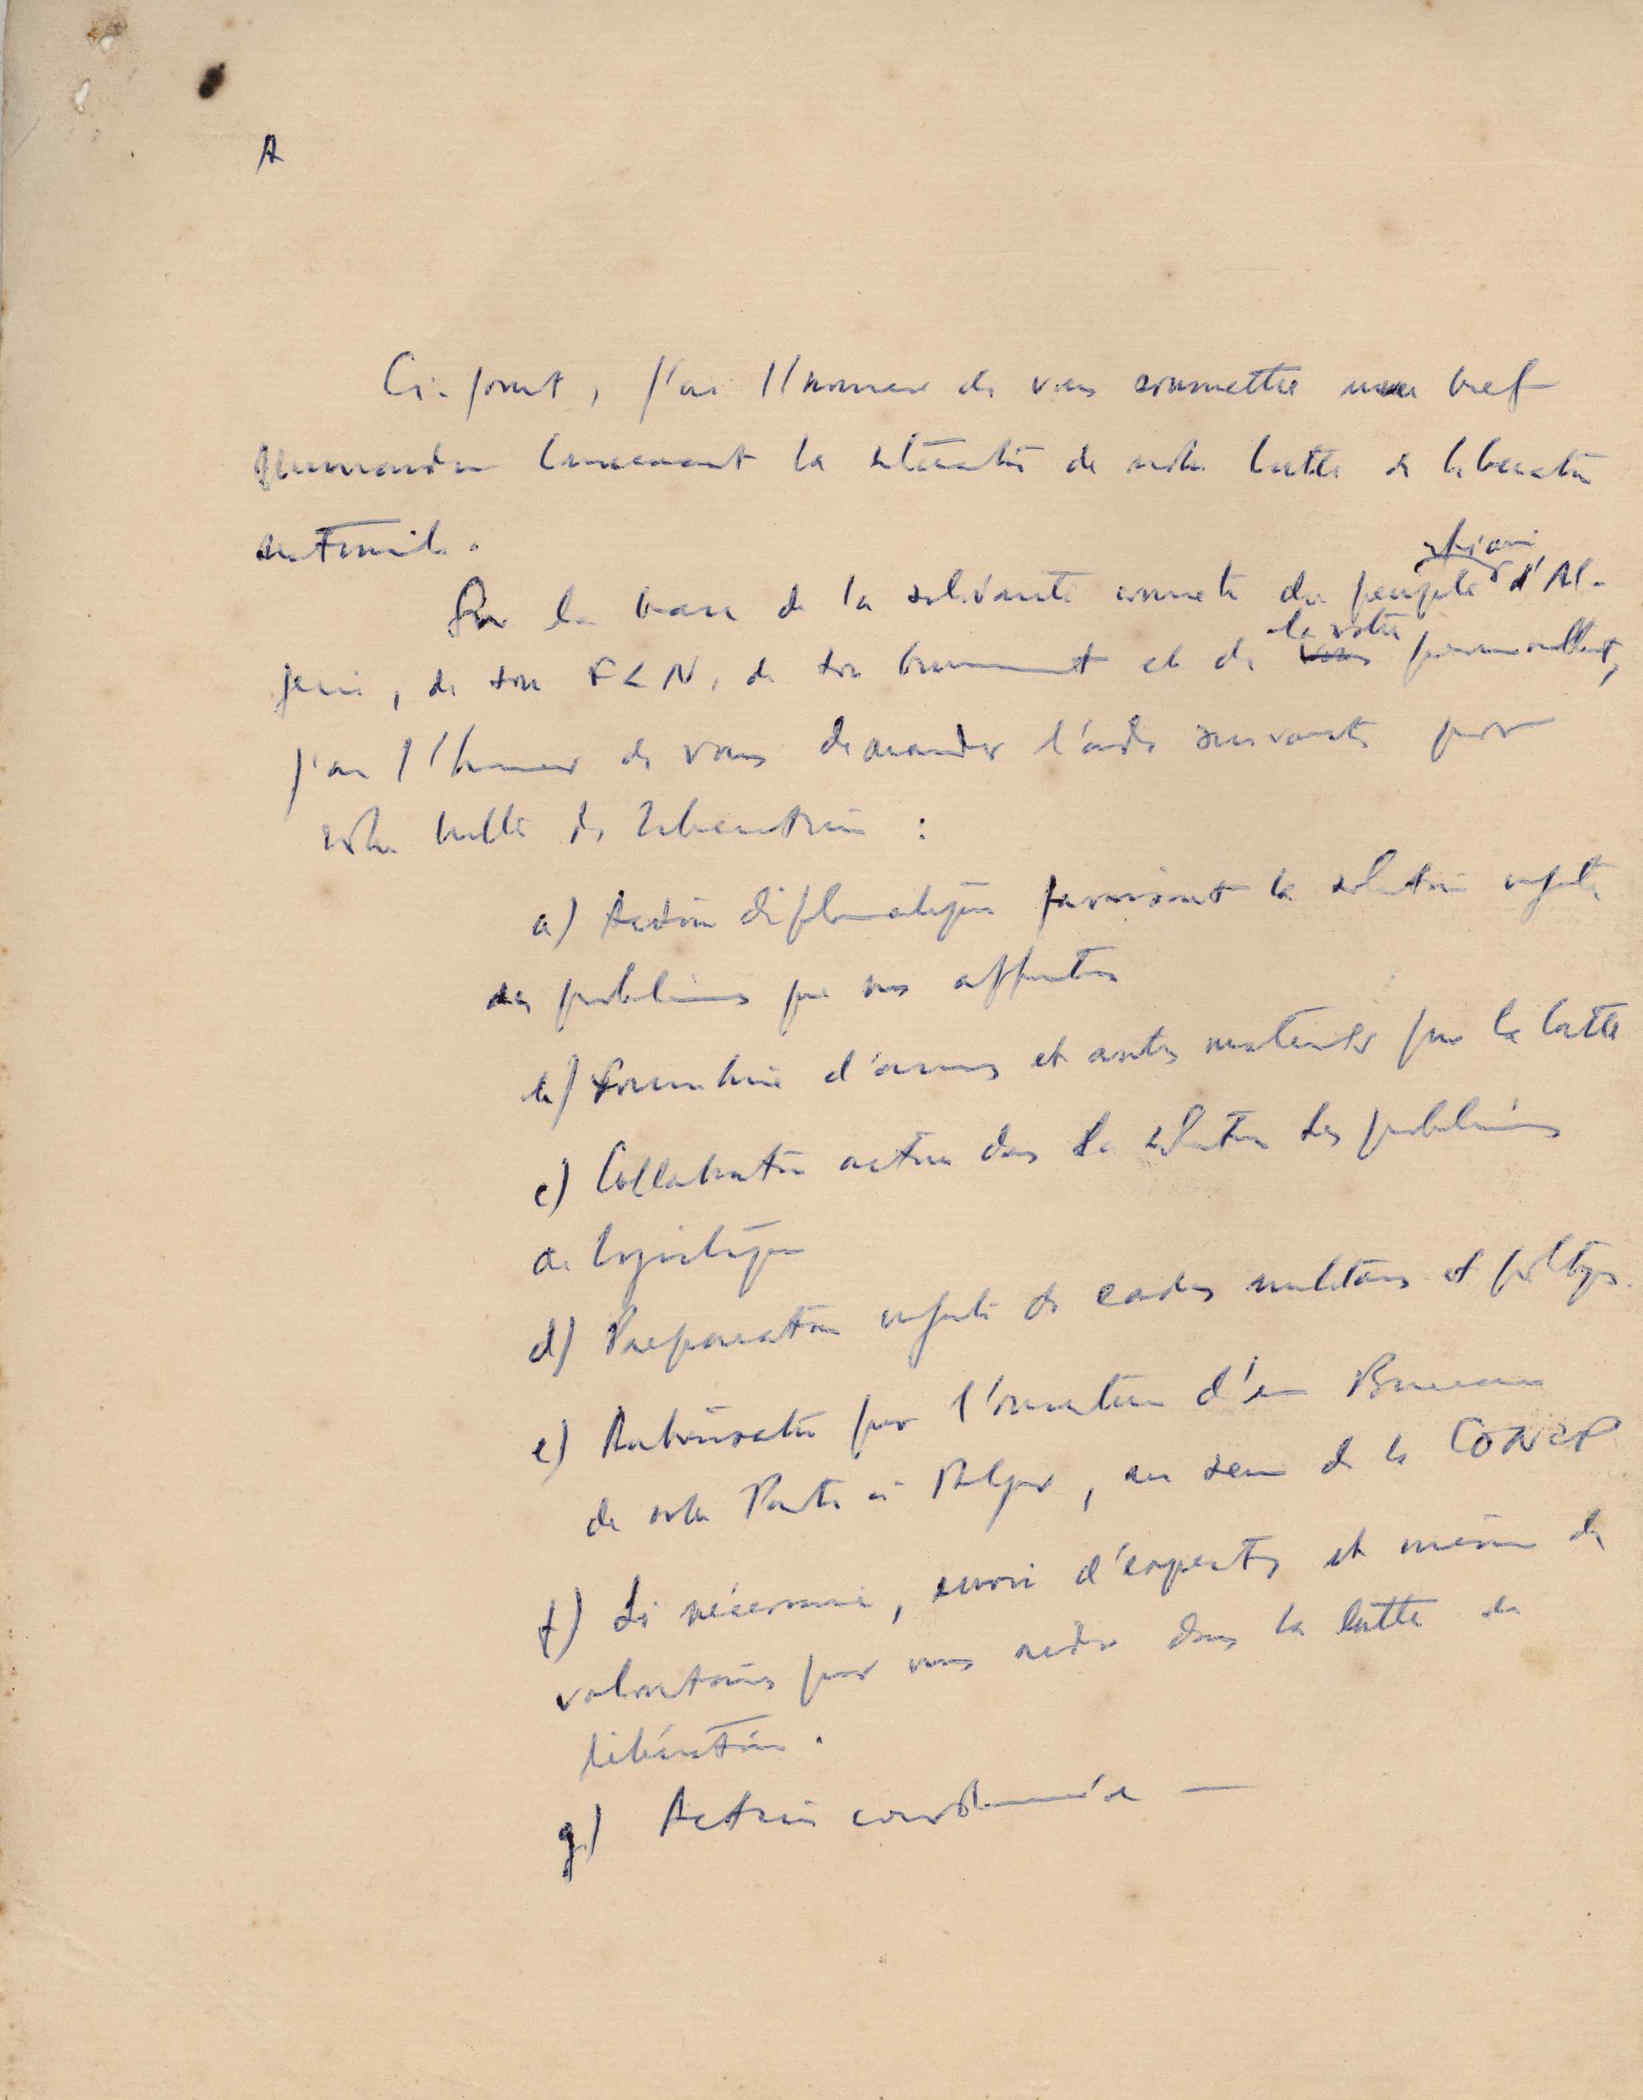 A
Ci-joint, j'ai l'honneur de vous soumettre un bref
memorandum concernant la situation de notre lutte de libération
nationale.
Sur la base de la solidarité concrète du peuple d'Al-
gérie, de son FLN, de son Gouvernement et de la votre personnellement,
j'ai l'honneur de vous demander l'aide suivante pour
notre lutte de libération :
a) Action diplomatique favorisant la solution urgente
des problèmes que nous affrontons
b) Fourniture d'armes et autres matériels pour la lutte
c) Collaboration active dans la solution des problèmes
de logistique
d) Préparation urgente de cadres militaires et politiques
e) Autorisation pour l'ouverture d'un Bureau
de notre Parti à Alger, au sein de la CONCP
f) Si nécessaire, envoi d'experts et même de
volontaires pour nous aider dans la lutte de
libération.
g) Action coordonnée —